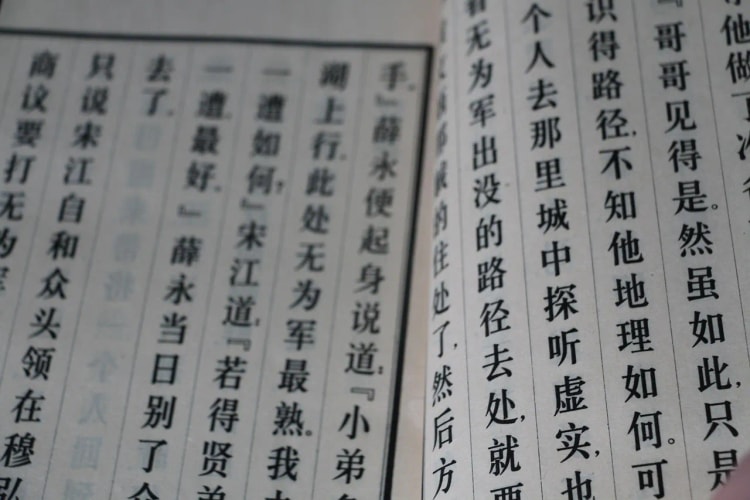 他做了
『哥哥见得是。然虽如此,只是
识得路径,不知他地理如何。可
个人去那里城中探听虚实,也
看无为军出没的路径去处,就要
的住处了,然后方
手。』薛永便起身说道:『小弟
湖上行,此处无为军最熟。我
一遭如何?』宋江道:『若得贤弟
一遭最好。』薛永当日别了
去了。
只说宋江自和众头领在穆弘
商议要打无为军